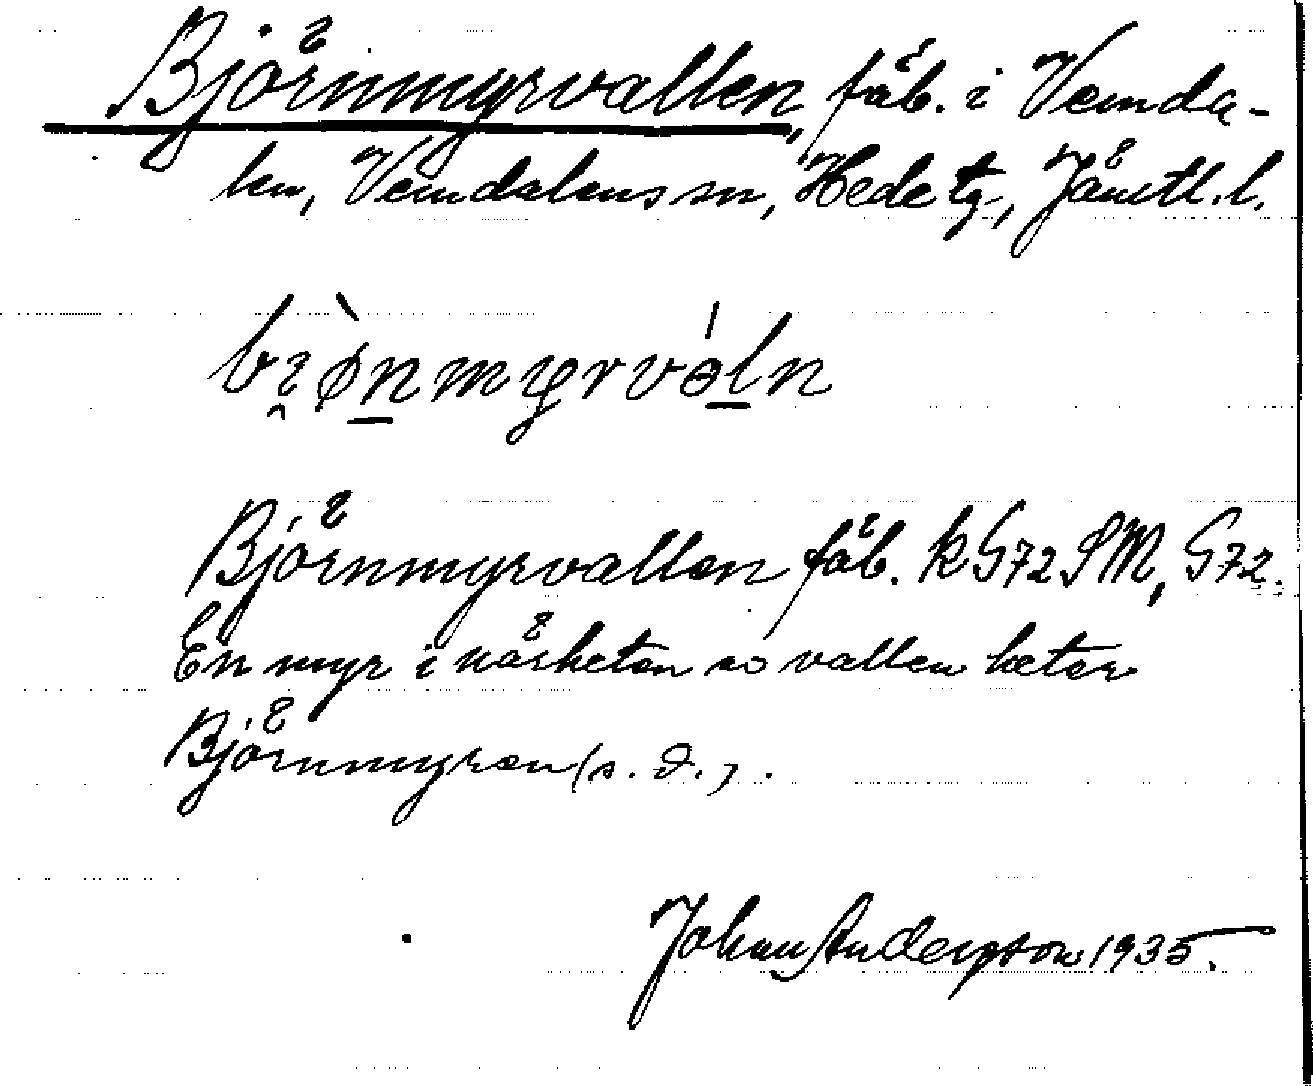 Björnmyrvallen, fäb. i Vemda-
len, Vemdalens sn, Hede tg., Jämtl. l.
Björnmyrvallen fäb. k G72 SM, G72.
En myr i närheten av vallen heter
Björnmyren (s. d.).
Johan Anderson 1935.